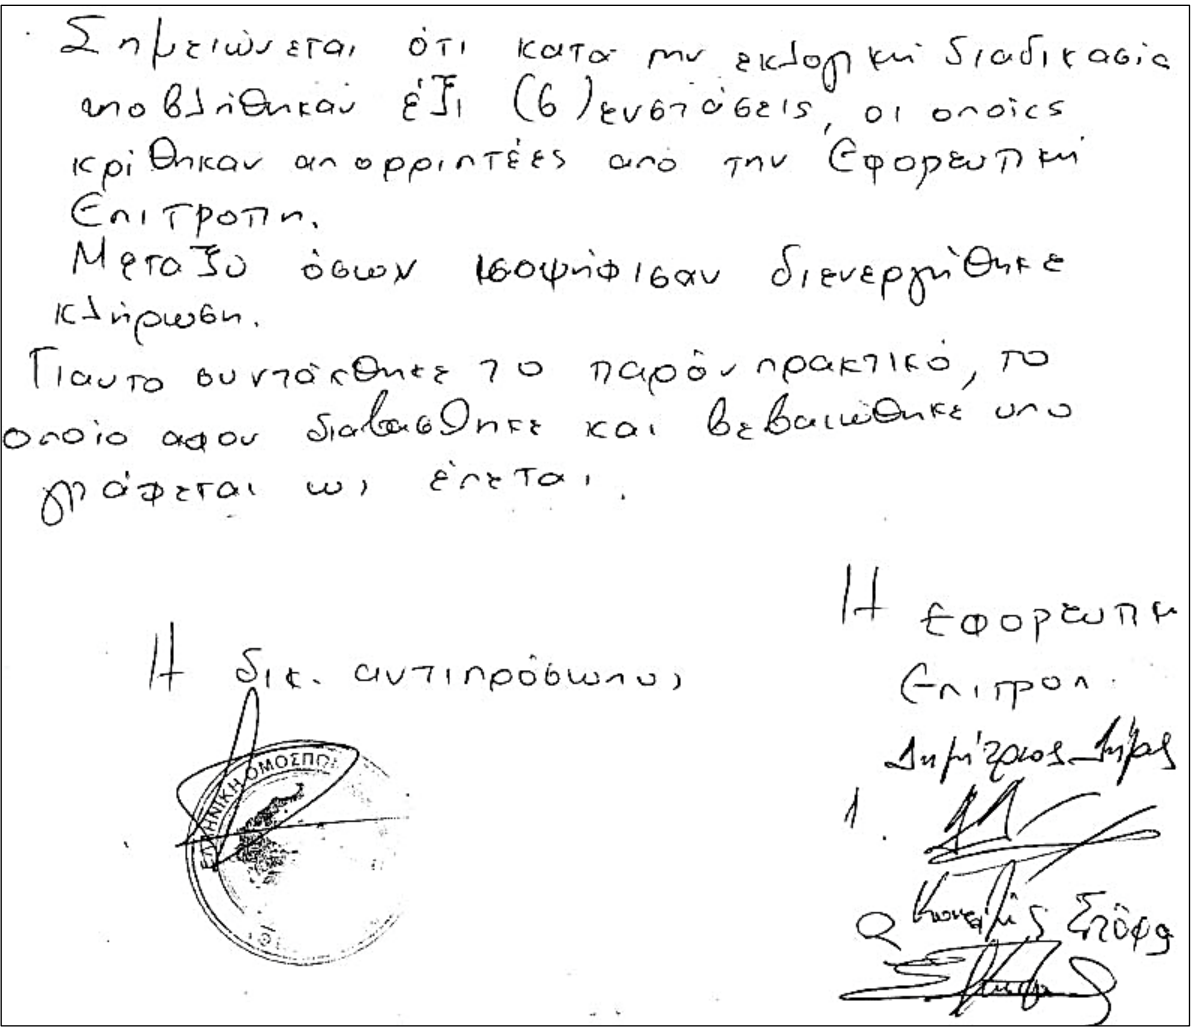 Σημειώνεται ότι κατα την εκλογική διαδικασία
υποβλήθηκαν έξι (6) ενστάσεις, οι οποίες
κρίθηκαν απορριπτέες από την Εφορευτική
Επιτροπη.
Μεταξυ όσων ισοψήφισαν διενεργήθηκε
κλήρωση.
Γιαυτο συντάχθηκε το παρόν πρακτικό, το
οποίο αφου διαβασθηκε και βεβαιωθηκε υπο
γράφεται ως έπεται.
Η Εφορευτικ
Η δικ. αντιπρόσωπος
Επιτροπ.
ΕΛΛΗΝΙΚΗ ΟΜΟΣΠΟ
Δημήτριος
1.
2